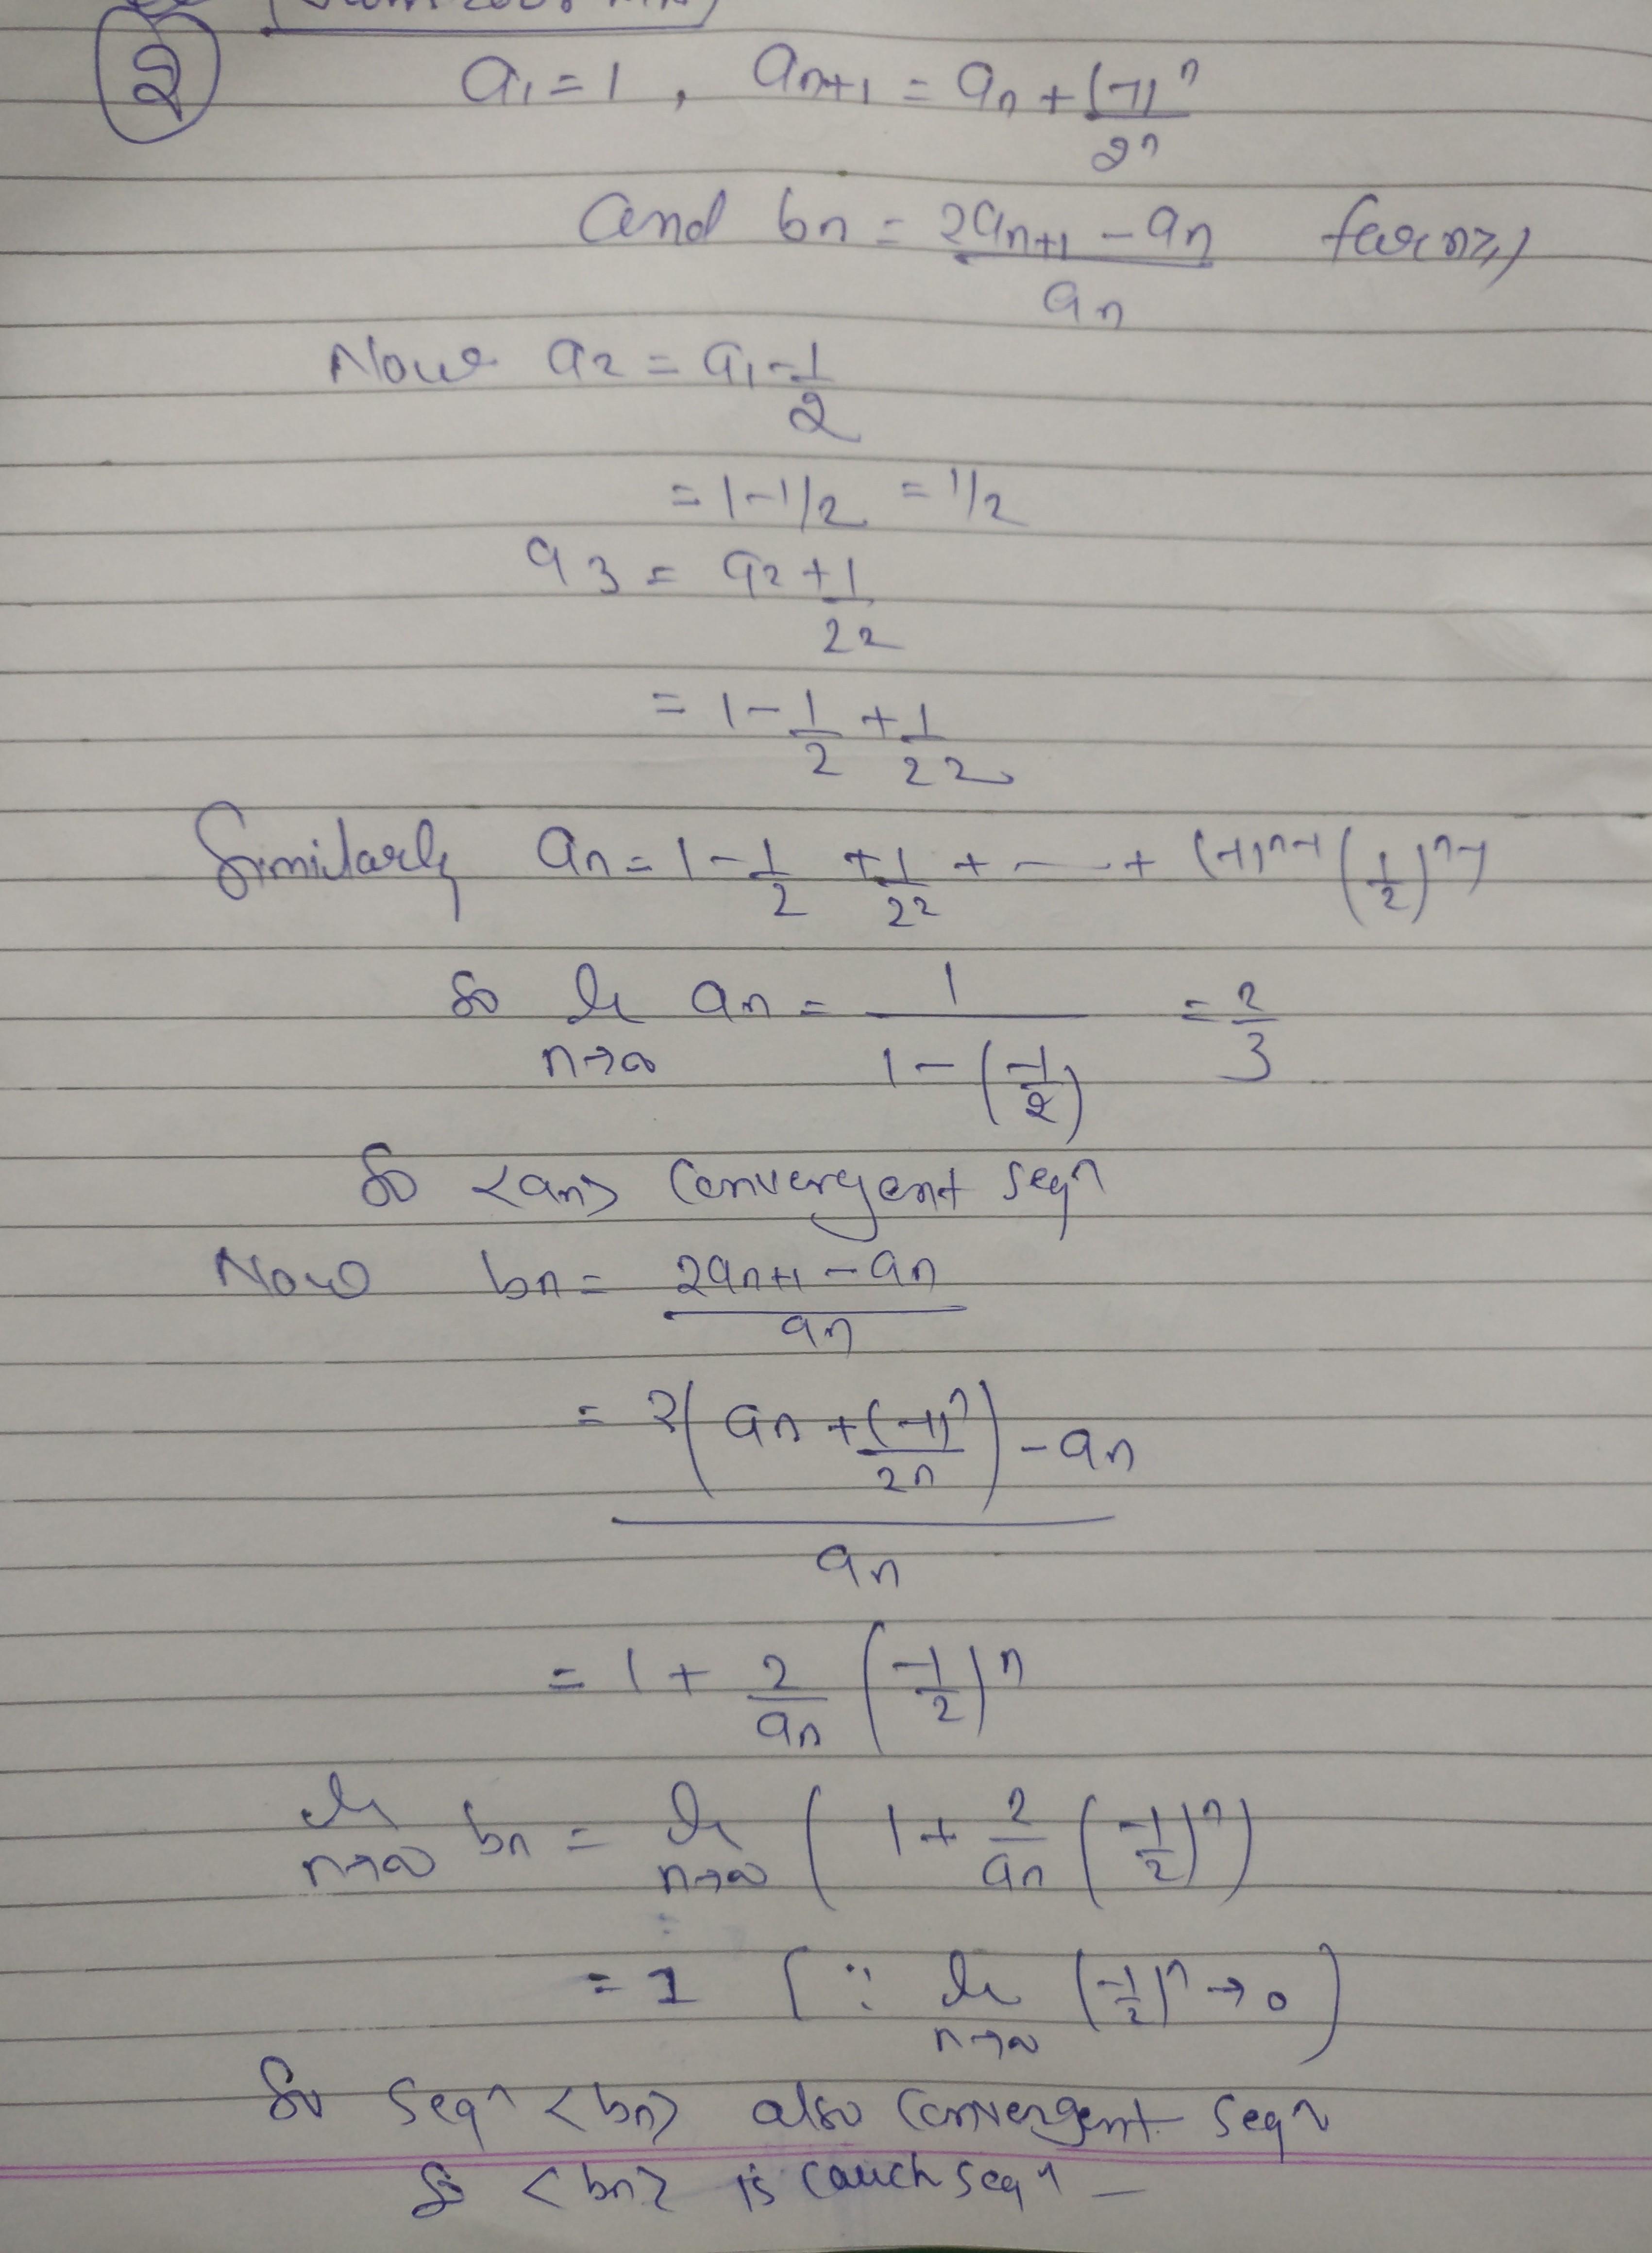 2
a₁ = 1 , aₙ₊₁ = aₙ + (-1)ⁿ / 2ⁿ
and bₙ = (2aₙ₊₁ - aₙ) / aₙ for n ≥ 1
Now a₂ = a₁ - 1/2
= 1 - 1/2 = 1/2
a₃ = a₂ + 1/2²
= 1 - 1/2 + 1/2²
Similarly aₙ = 1 - 1/2 + 1/2² + — + (-1)ⁿ⁻¹ (1/2)ⁿ⁻¹
So lt n→∞ aₙ = 1 / (1 - (-1/2)) = 2/3
So <aₙ> Convergent seqⁿ
Now bₙ = (2aₙ₊₁ - aₙ) / aₙ
= (2(aₙ + (-1)ⁿ / 2ⁿ) - aₙ) / aₙ
= 1 + 2/aₙ (-1/2)ⁿ
lt n→∞ bₙ = lt n→∞ (1 + 2/aₙ (-1/2)ⁿ)
= 1 [∵ lt n→∞ (-1/2)ⁿ → 0)
So seqⁿ <bₙ> also Convergent seqⁿ
So <bₙ> is cauch seqⁿ —